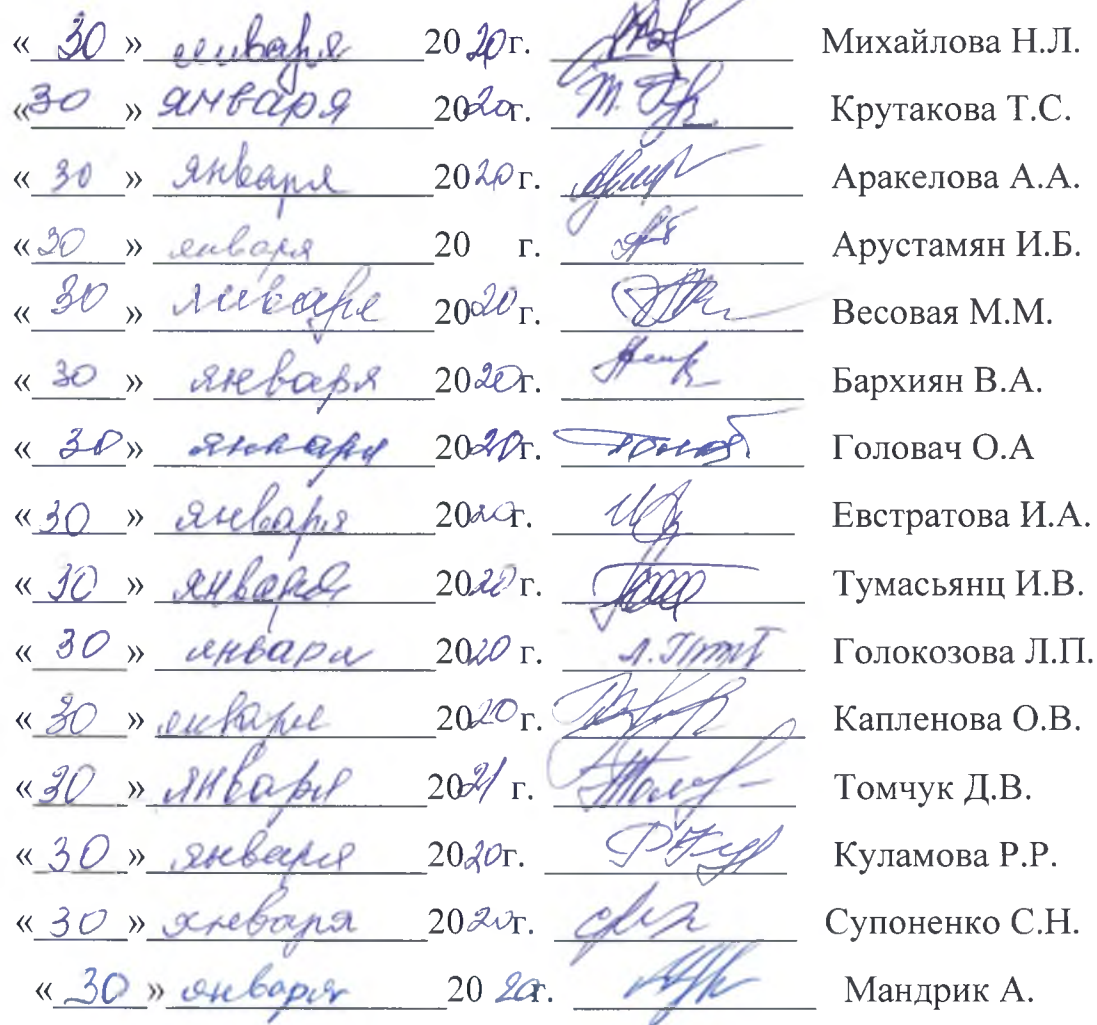 « 30 » января 2020г. Михайлова Н.Л.
«30 » января 2020г. Т. Крутакова Т.С.
« 30 » января 2020 г. Аракелова А.А.
«30 » января 20 г. Арустамян И.Б.
« 30 » января 2020 г. Весовая М.М.
« 30 » января 2020г. Бархиян В.А.
« 30» января 2020г. Головач О.А
«30 » января 2020г. Евстратова И.А.
« 30 » января 2020 г. Тумасьянц И.В.
« 30 » января 2020 г. Л. Голокозова Л.П.
« 30 » января 2020 г. Капленова О.В.
«30 » января 2021 г. Томчук Д.В.
« 30 » января 2020г. Куламова Р.Р.
« 30 » января 2020г. Супоненко С.Н.
« 30 » января 20 20г. Мандрик А.